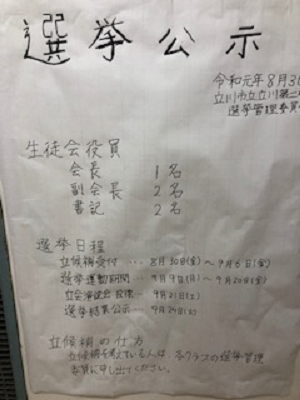 選挙公示
令和元年8月30
立川市立立川第二
選挙管理委員
生徒会役員
会長 1名
副会長 2名
書記 2名
選挙日程
立候補受付 … 8月30日(金)~9月6日(金)
選挙運動期間 … 9月9日(月)~9月20日(金)
立会演説会・投票 … 9月21日(土)
選挙結果公示 … 9月24日(火)
立候補の仕方
立候補を考えている人は、各クラスの選挙管理
委員に申し出てください。